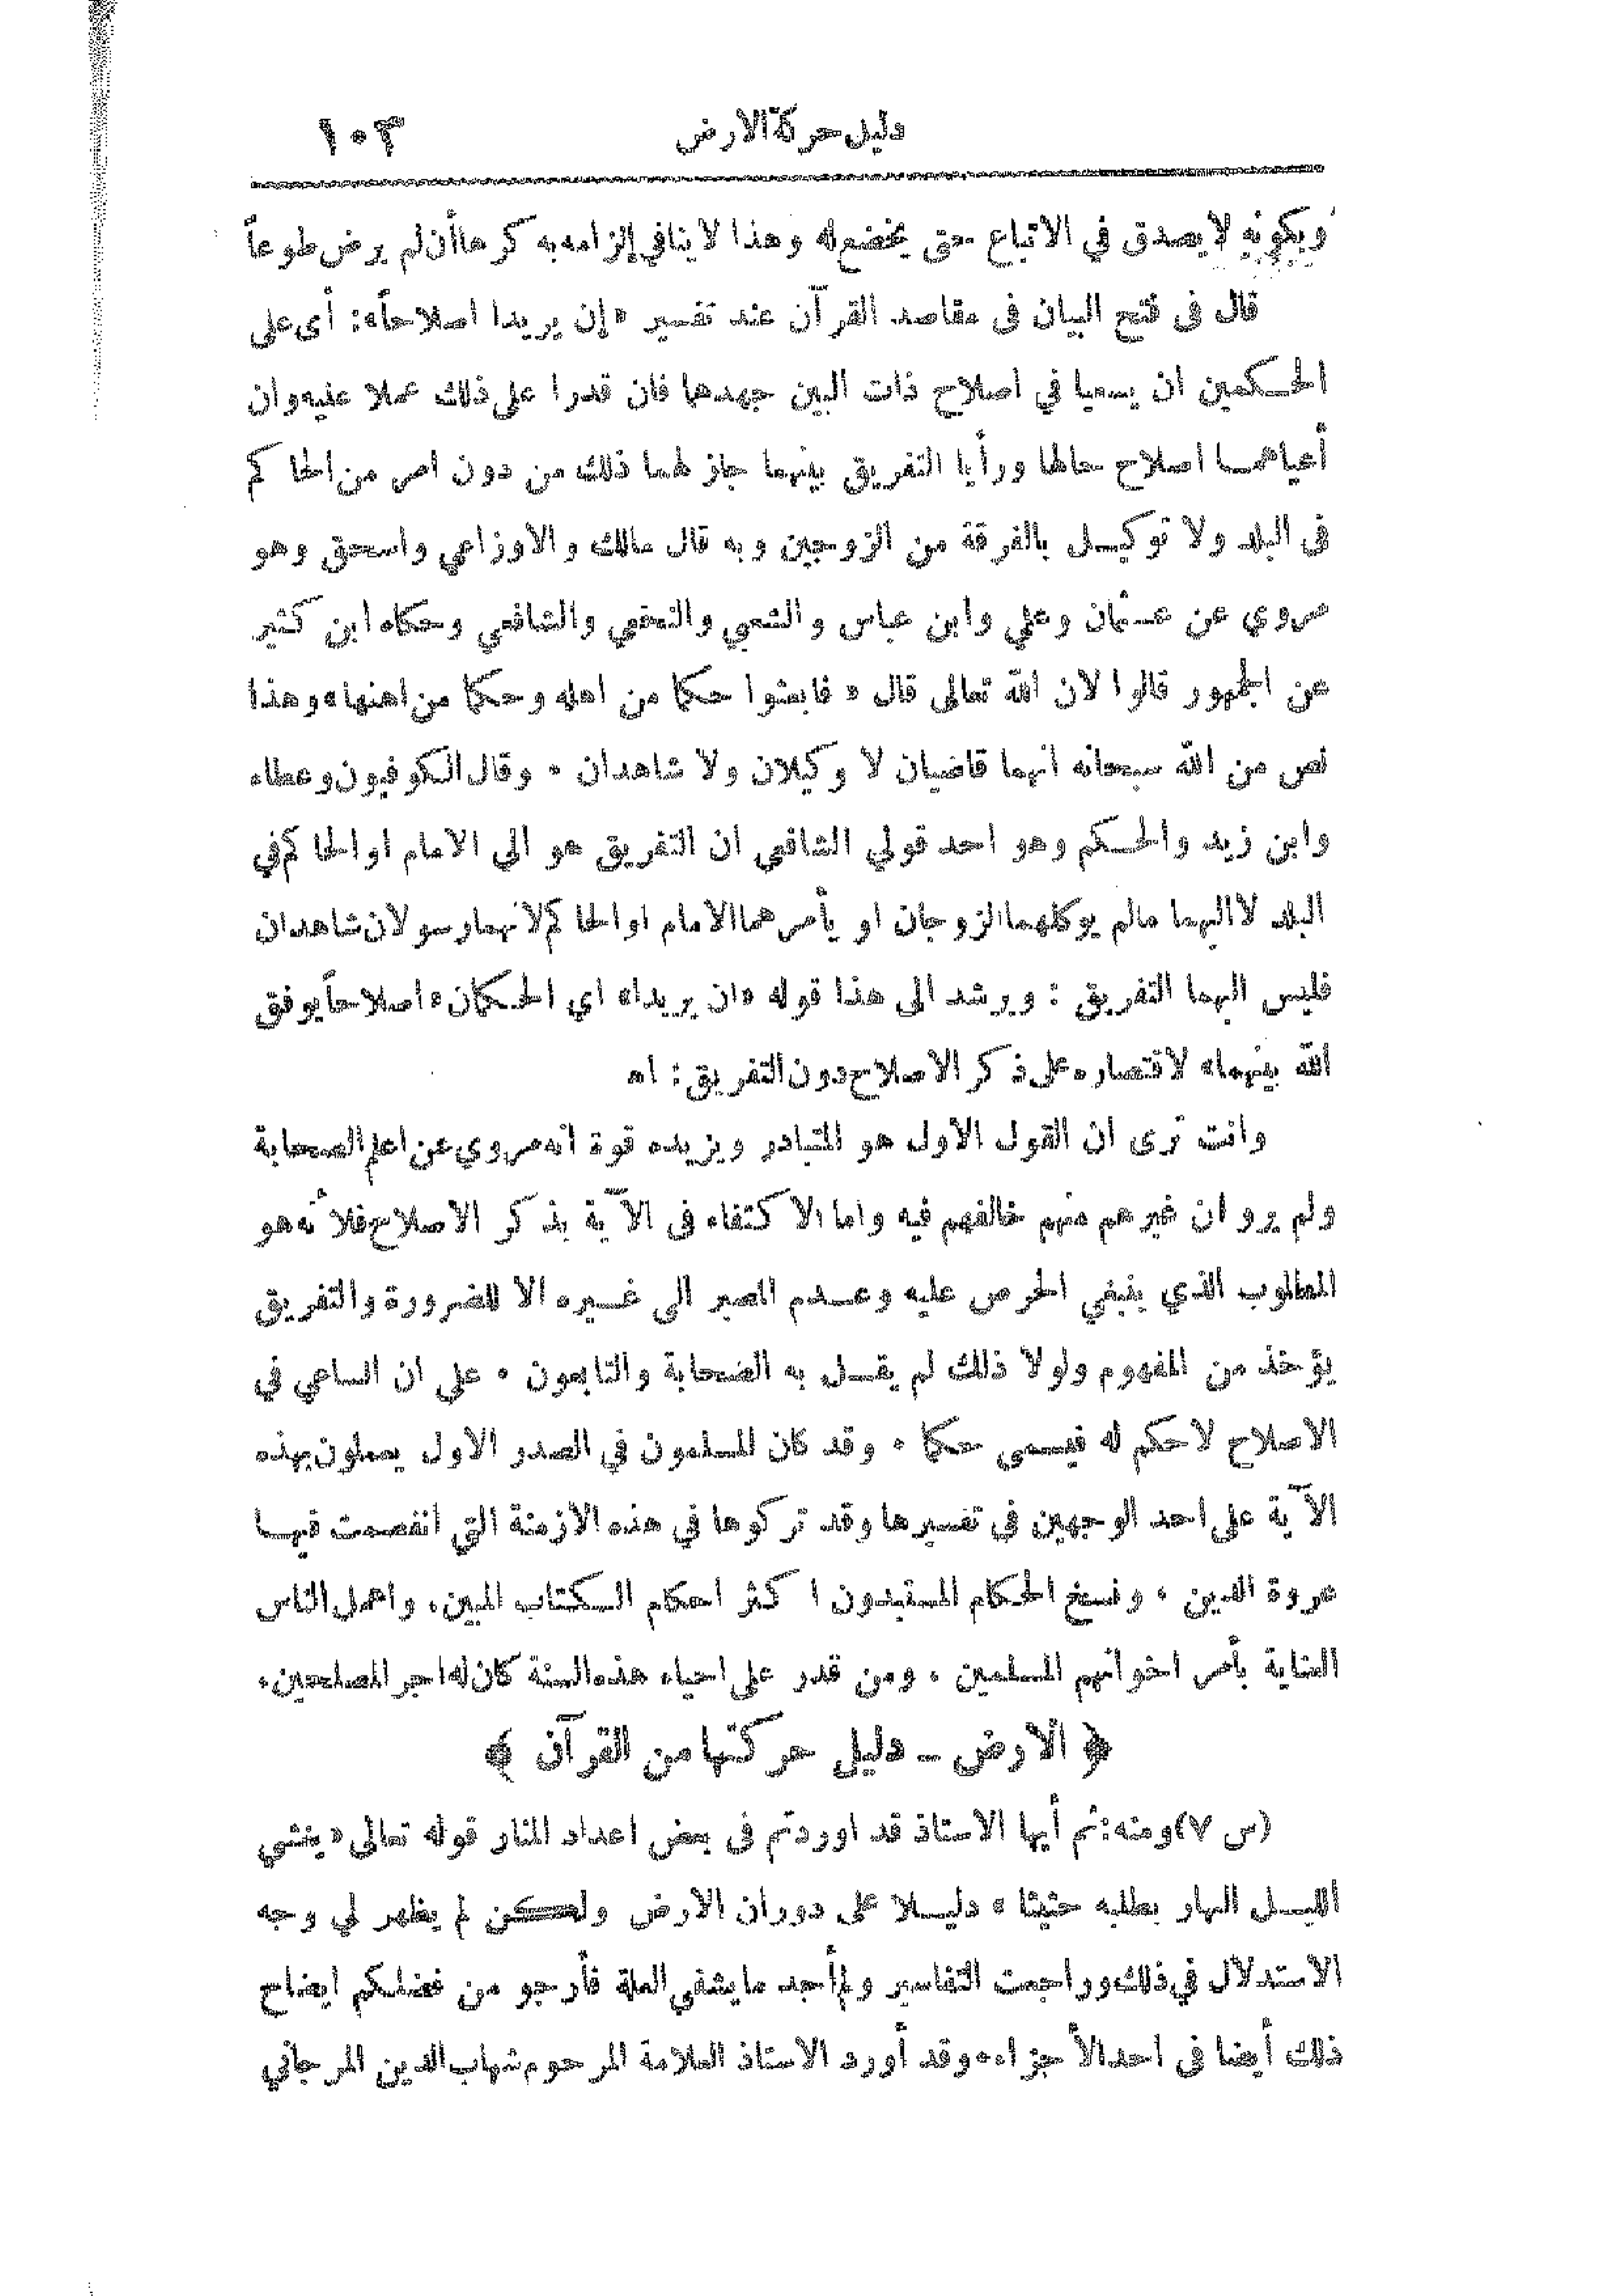 دليل حركة الارض ١٠٣
وبكونه لا يصدق في الاتباع حتى يخضع له وهذا لا ينافي إلزامه به كرها أن لم يرض طوعاً
قال فى فتح البيان فى مقاصد القرآن عند تفسير «إن يريدا اصلاحاً»: أى على
الحكمين ان يسعيا في اصلاح ذات البين جهدهما فان قدرا على ذلك عملا عليه وان
أعياهما اصلاح حالهما ورأيا التفريق بينهما جاز لهما ذلك من دون امر من الحاكم
فى البلد ولا توكيل بالفرقة من الزوجين وبه قال مالك والاوزاعي واسحق وهو
مروي عن عثمان وعلي وابن عباس والشعبي والنخعي والشافعي وحكاه ابن كثير
عن الجمهور قالوا لان الله تعالى قال « فابعثوا حكما من اهله وحكما من اهلها» وهذا
نص من الله سبحانه انهما قاضيان لا وكيلان ولا شاهدان ٠ وقال الكوفيون وعطاء
وابن زيد والحكم وهو احد قولي الشافعي ان التفريق هو الي الامام او الحاكم في
البلد لا اليهما مالم يوكلهما الزوجان او يأمرهما الامام او الحاكم لانهما رسولان شاهدان
فليس اليهما التفريق : ويرشد الى هذا قوله «ان يريدا» اي الحكمان «اصلاحاً يوفق
الله بينهما» لاقتصاره على ذكر الاصلاح دون التفريق : اه
وانت ترى ان القول الاول هو المتبادر ويزيده قوة انه مروي عن اعلم الصحابة
ولم يرو ان غيرهم منهم خالفهم فيه واما الاكتفاء فى الآية بذكر الاصلاح فلأنه هو
المطلوب الذي ينبغي الحرص عليه وعدم المصير الى غيره الا للضرورة والتفريق
يؤخذ من المفهوم ولولا ذلك لم يقل به الصحابة والتابعون ٠ على ان الساعي في
الاصلاح لا حكم له فيسمى حكما ٠ وقد كان المسلمون في الصدر الاول يعملون بهذه
الآية على احد الوجهين فى تفسيرها وقد تركوها في هذه الازمنة التي انفصمت فيها
عروة الدين ، ونسخ الحكام المستبدون اكثر احكام الكتاب المبين، واهمل الناس
العناية بأمر اخوانهم المسلمين ، ومن قدر على احياء هذه السنة كان له اجر المصلحين،
﴿ الارض – دليل حركتها من القرآن ﴾
(س ٧) ومنه: ثم أيها الاستاذ قد اوردتم فى بعض اعداد المنار قوله تعالى «يغشي
الليل النهار يطلبه حثيثا » دليلا على دوران الارض ولكن لم يظهر لي وجه
الاستدلال في ذلك وراجعت التفاسير ولم أجد ما يشفي العلة فأرجو من فضلكم ايضاح
ذلك أيضا فى احد الأجزاء ٠ وقد أورد الاستاذ العلامة المرحوم شهاب الدين المرجاني